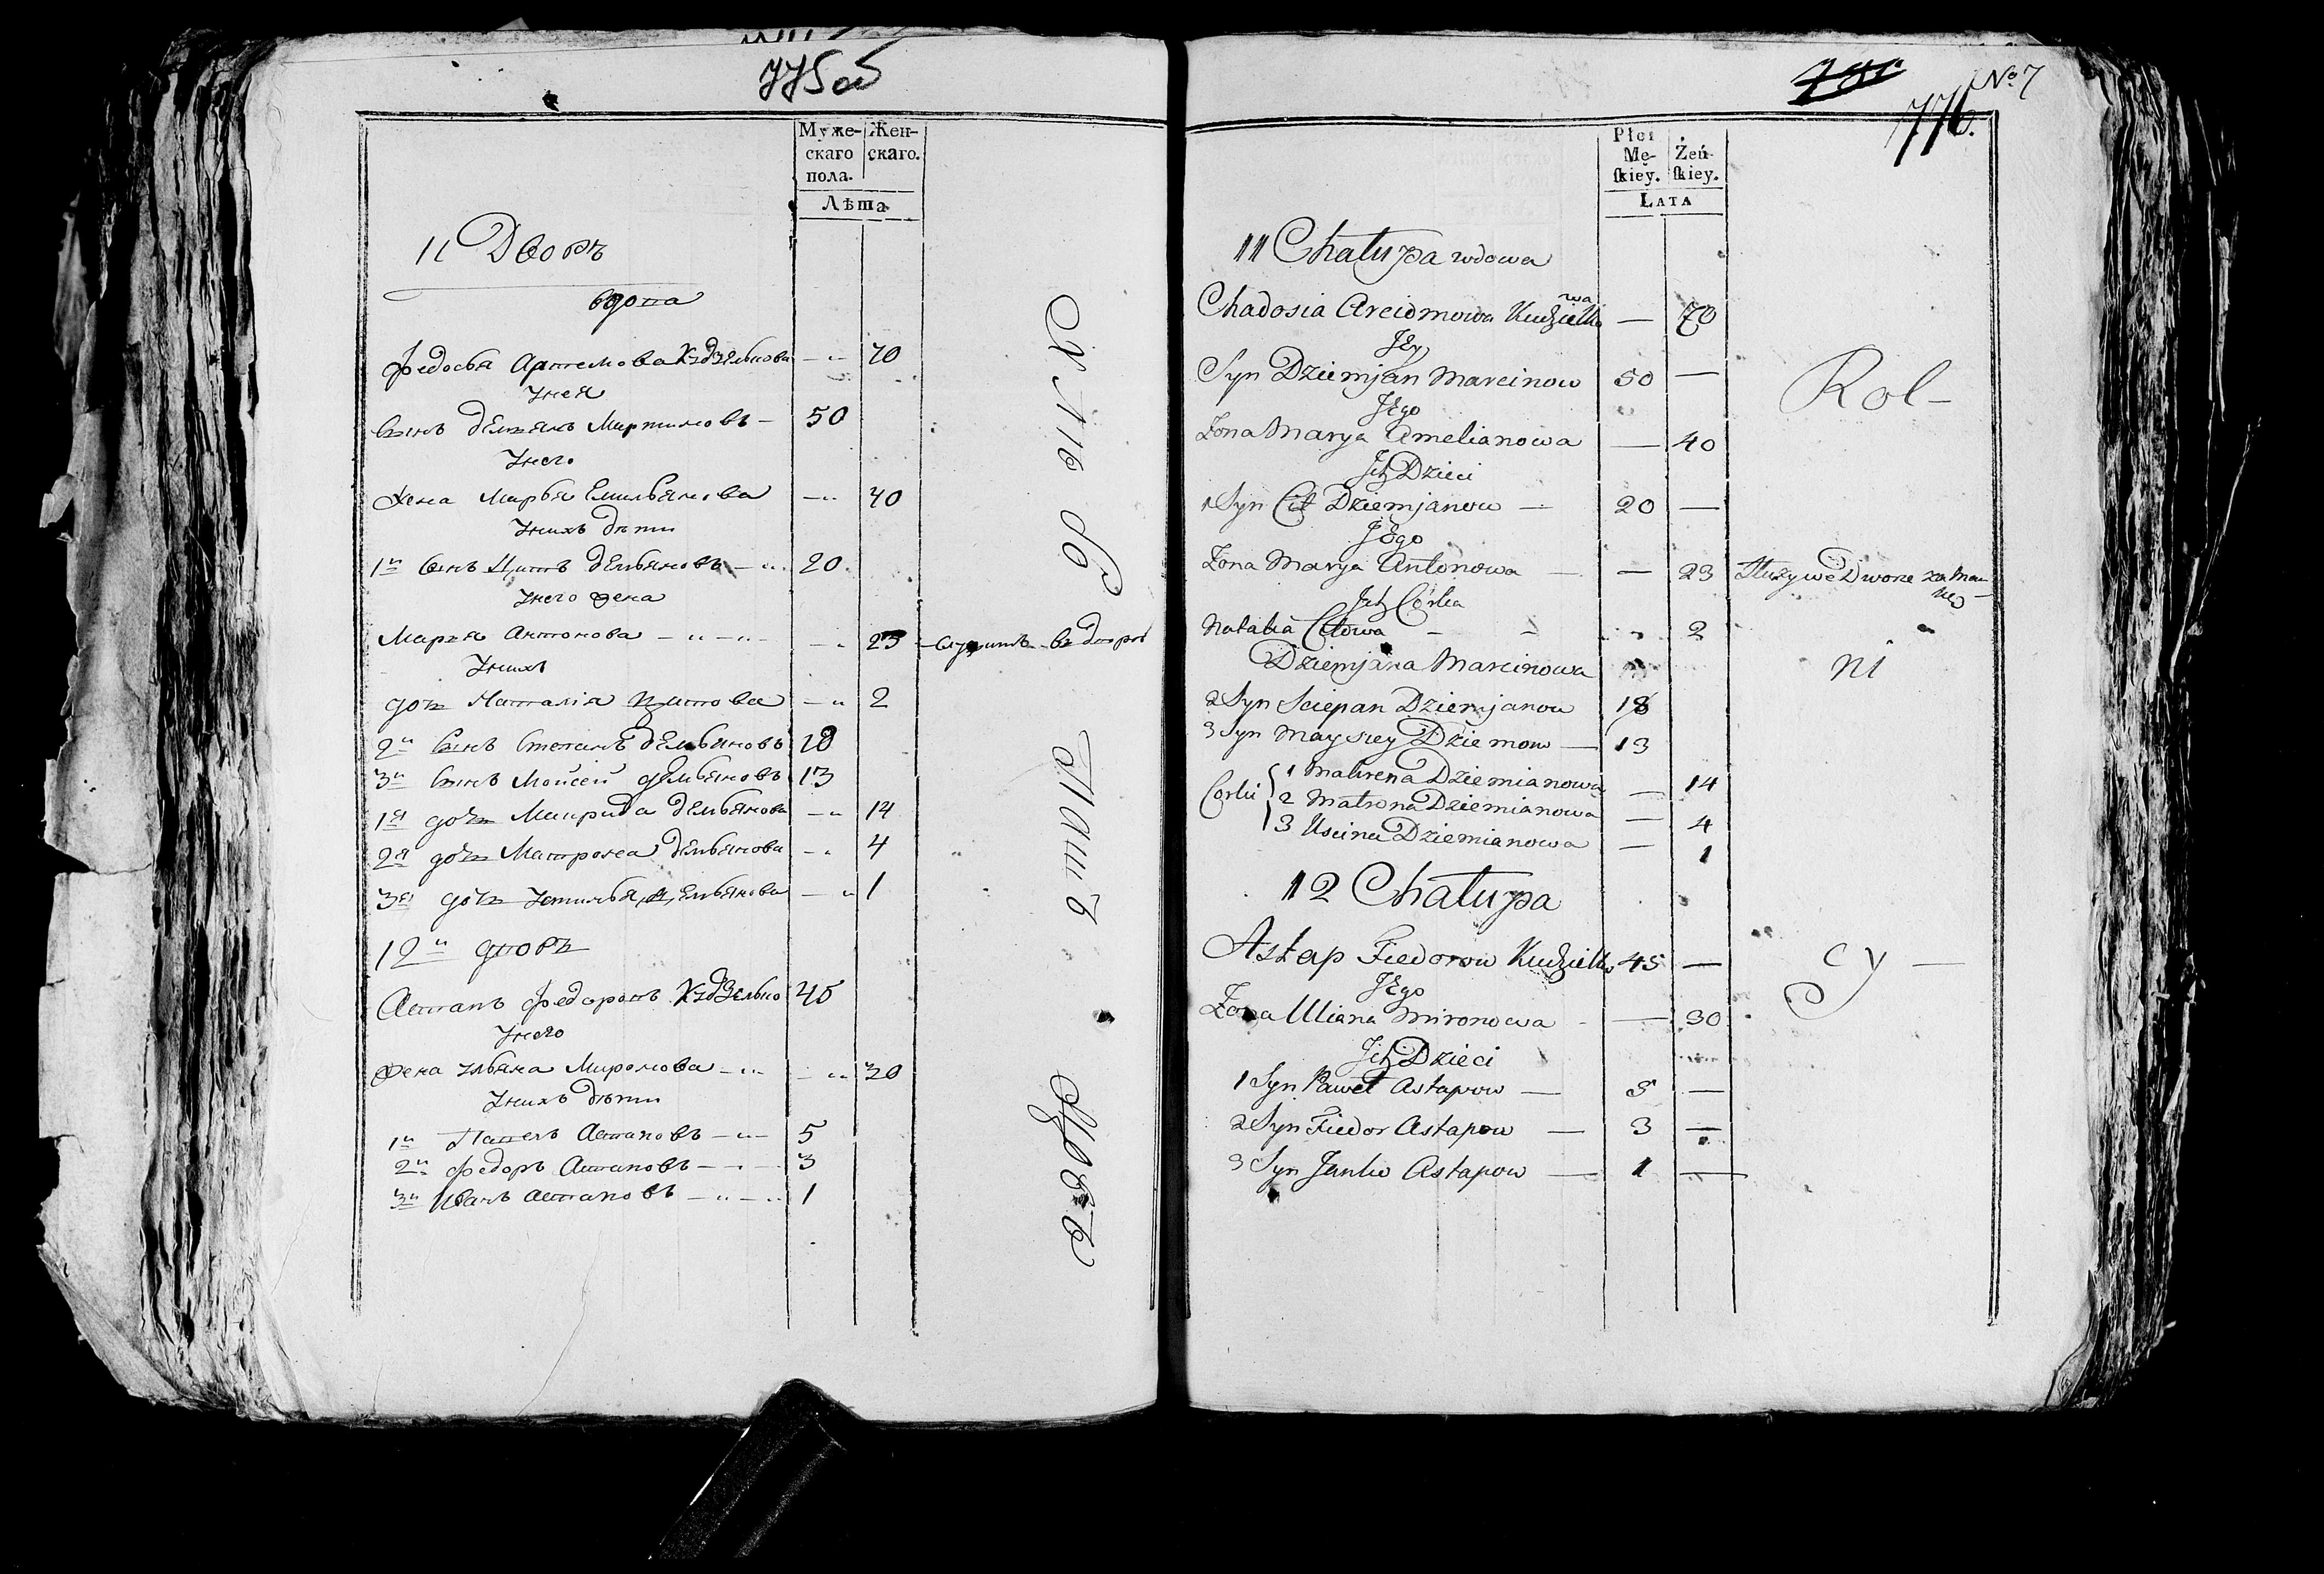 775 об
Муже-
скаго
пола.
Жен-
скаго.
Лѣта
11 Дворъ
вдова
Федосья Артемова Кудзелькова — 70
У нея
Сынъ Демьянъ Мартиновъ — 50
У него
Жена Марья Емильянова — 40
У нихъ дѣти
1й Сынъ Цитъ Демьяновъ — 20
У него жена
Марья Антонова — 23 — служитъ въ дворѣ
У нихъ
дочь Наталія Цитова — 2
2й Сынъ Степанъ Демьяновъ 18
3й Сынъ Мойсей Демьяновъ 13
1я дочь Демьянова — 14
2я дочь Матрона Демьянова — 4
3я дочь Устинья Демьянова — 1
12й дворъ
Астапъ Федоровъ Кудзелько 45
У него
Жена Ульяна Миронова — 30
У нихъ дѣти
1й Павелъ Астаповъ — 5
2й Федоръ Астаповъ — 3
3й Иванъ Астаповъ — 1
No 7
776.
Płci
Mę-
skiey.
Żeń-
skiey.
LATA
11 Chałupa wdowa
Chadosia Arciomowa Kudziełkowa — 70
Jey
Syn Dziemjan Marcinow 50 —
Jego
Żona Marya Amelianowa — 40
Ich Dzieci
1 Syn Cit Dziemjanow — 20 —
Jego
Żona Marya Antonowa — 23 Służy we Dworze za
Ich Córka
Natalia Citowa - - 2
Dziemjana Marcinowa
2 Syn Sciepan Dziemjanow 18
3 Syn Maysiey Dziemow — 13
Corki 1 Mawrena Dziemianowa — 14
2 Matrona Dziemianowa — 4
3 Uscina Dziemianowa — 1
12 Chałupa
Astap Fiedorow Kudziełko 45 —
Jego
Żona Uliana Mironowa — 30
Ich Dzieci
1 Syn Paweł Astapow — 5 —
2 Syn Fiedor Astapow — 3 —
3 Syn Janko Astapow — 1 —
Rol-
ni
cy —